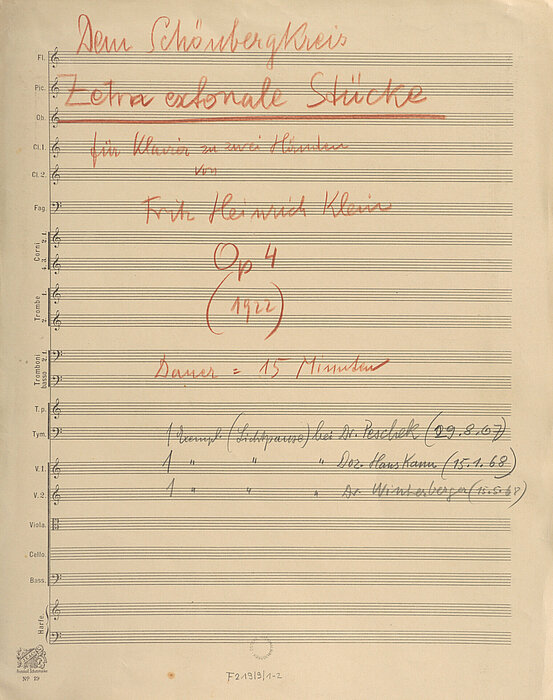 Dem Schönbergkreis
Fl.
Zehn extonale Stücke
Pic.
Ob.
für Klavier zu zwei Händen
Cl. 1.
von
Cl. 2.
Fritz Heinrich Klein
Fag.
Op 4
Corni 1. 2.
3. 4.
(1922)
Trombe 1.
2.
Dauer = 15 Minuten
Tromboni 1. 2.
basso 3.
T. p.
1 Exempl. (Lichtpause) bei Dr. Peschek (29.8.67)
Tym.
1 " " " Doz. Hans Kann (15.1.68)
V. 1.
1 " " " Dr. Winterberger (15.5.68)
V. 2.
Viola.
Cello.
Bass.
Harfe.
Nº 29
F 219/9/1-2